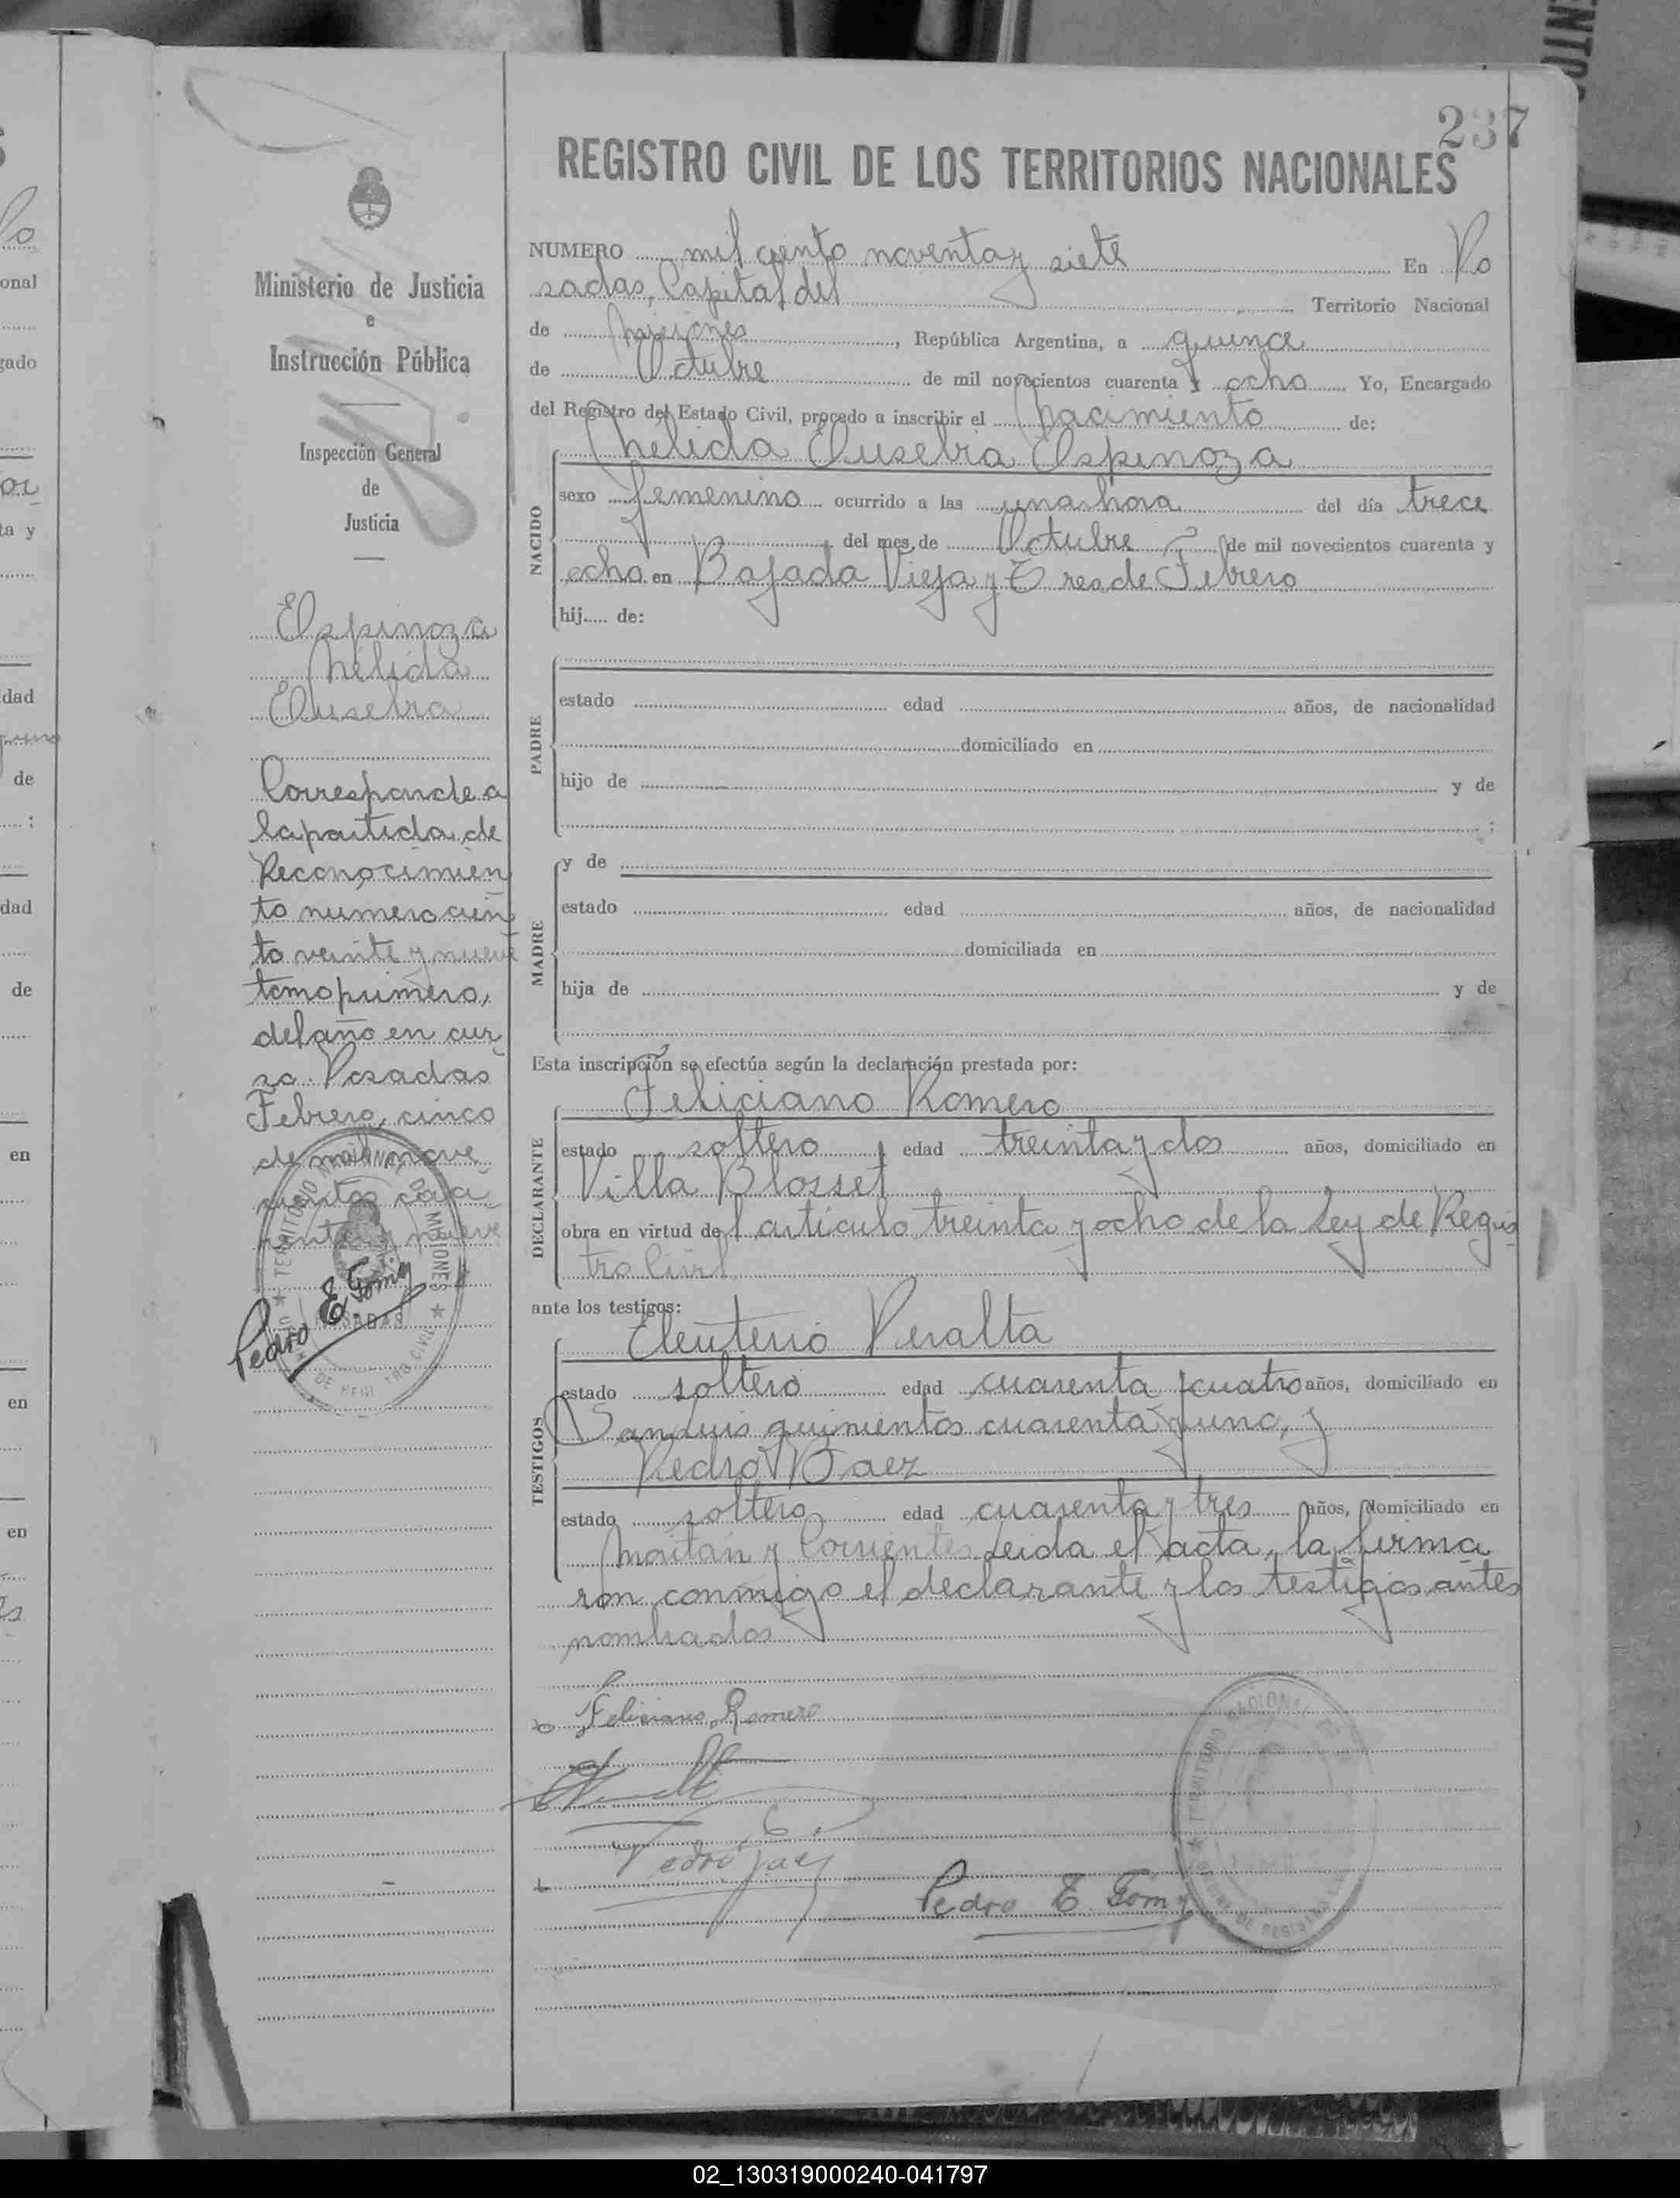 237
REGISTRO CIVIL DE LOS TERRITORIOS NACIONALES
NUMERO mil ciento noventa y siete En Po
sadas, Capital del Territorio Nacional
de Misiones, República Argentina, a quince
de Octubre de mil novecientos cuarenta y ocho Yo, Encargado
del Registro del Estado Civil, procedo a inscribir el Nacimiento de:
Nélida Eusebia Espinoza
NACIDO
sexo femenino ocurrido a las una hora del día trece
del mes de Octubre de mil novecientos cuarenta y
ocho en Bajada Vieja y Tres de Febrero
hij..... de:
PADRE
estado edad años, de nacionalidad
domiciliado en
hijo de y de
:
MADRE
y de
estado edad años, de nacionalidad
domiciliada en
hija de y de
Esta inscripción se efectúa según la declaración prestada por:
Feliciano Romero
DECLARANTE
estado soltero edad treinta y dos años, domiciliado en
Villa Blosset
obra en virtud del artículo treinta y ocho de la Ley de Regis
tro Civil
ante los testigos:
Eleuterio Peralta
TESTIGOS
estado soltero edad cuarenta y cuatro años, domiciliado en
San Luis quinientos cuarenta y uno, y
Pedro Baez
estado soltero edad cuarenta y tres años, domiciliado en
Maitán y Corrientes Leida el acta, la firma
ron conmigo el declarante y los testigos antes
nombrados
Feliciano Romero
Pedro Baez
Pedro E. Gomez
Ministerio de Justicia
e
Instrucción Pública
Inspección General
de
Justicia
Espinoza
Nélida
Eusebia
Corresponde a
la partida de
Reconocimien
to numero cien
to veinte y nueve
tomo primero,
del año en cur
so. Posadas
Febrero, cinco
de mil nove
cientos cua
renta y nueve
Pedro E. Gomez
TERRITORIO NACIONAL DE MISIONES
POSADAS
02_130319000240-041797